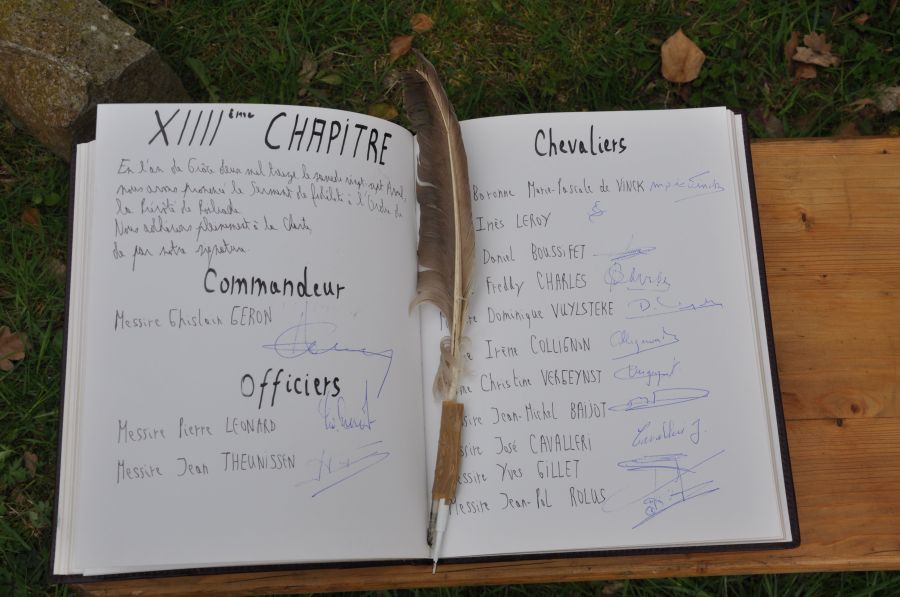 XIIIIème CHAPITRE
En l'an de Grâce deux mil treize le samedi vingt-sept Avril,
nous avons prononcé le Serment de fidélité à l'Ordre de
la Prévôté de
Nous adhérons pleinement à la Charte,
de par notre signature.
Commandeur
Messire Ghislain GERON
Officiers
Messire Pierre LEONARD
Messire Jean THEUNISSEN
Chevaliers
Baronne Marie-Pascale de VINCK
Inès LEROY
Daniel BOUSSIFET
Freddy CHARLES
Dominique VUYLSTEKE
Irène COLLIGNON
Christine VERGEYNST
Jean-Michel BAIJOT
José CAVALLERI Cavalleri J.
Yves GILLET
Messire Jean-Pol ROLUS